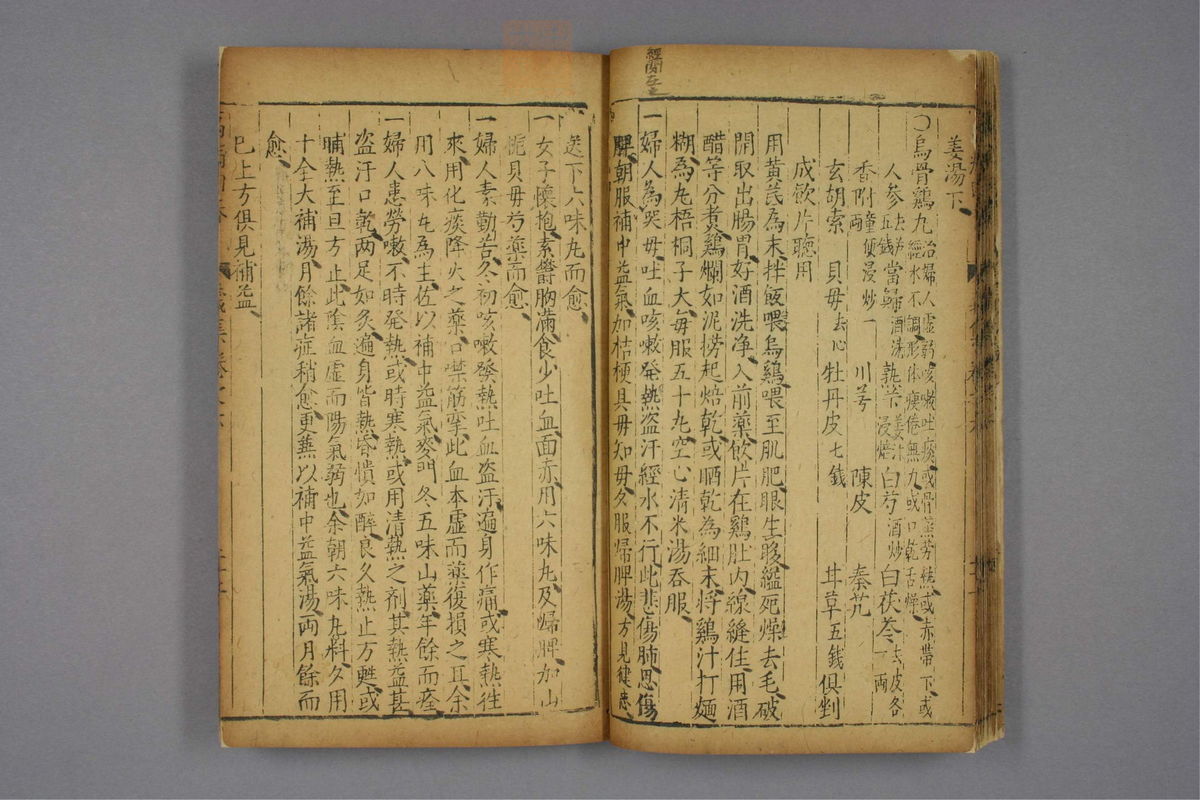 姜湯下
〇烏骨鷄丸治婦人虛弱咳嗽吐痰或骨蒸勞熱或赤帶下或
經水不調形体瘦倦無力或口乾舌燥
人参去芦五錢當歸酒洗熟苄姜汁浸焙白芍酒炒白茯苓去皮各一兩
香附童便浸炒一兩川芎陳皮秦艽
玄胡索貝母去心牡丹皮七錢甘草五錢俱剉
成飲片聽用
用黃芪為末拌飯喂烏鷄喂至肌肥眼生眵纔死燥去毛破
開取出腸胃好酒洗净入前藥飲片在鷄肚内線縫住用酒
醋等分煮鷄爛如泥撈起焙乾或晒乾為細末將鷄汁打麵
糊為丸梧桐子大每服五十丸空心清米湯吞服
一婦人為哭母吐血咳嗽發熱盗汗經水不行此悲傷肺思傷
脾朝服補中益氣加桔梗貝母知母夕服歸脾湯方見健忘
送下六味丸而愈
一女子懷抱素欝胸滿食少吐血面赤用六味丸及歸脾加山
梔貝母芍藥而愈
一婦人素勤苦冬初咳嗽發熱吐血盗汗遍身作痛或寒熱徃
來用化痰降火之藥口噤筋攣此血本虛而藥復損之耳余
用八味丸為主佐以補中益氣麥門冬五味山藥年餘而痊
一婦人患勞嗽不時發熱或時寒熱或用清熱之劑其熱益甚
盗汗口乾两足如炙遍身皆熱昏憒如醉良久熱止方甦或
晡熱至旦方止此隂血虛而陽氣弱也余朝六味丸料夕用
十全大補湯月餘諸症稍愈更蕪以補中益氣湯两月餘而
愈
已上方俱見補益